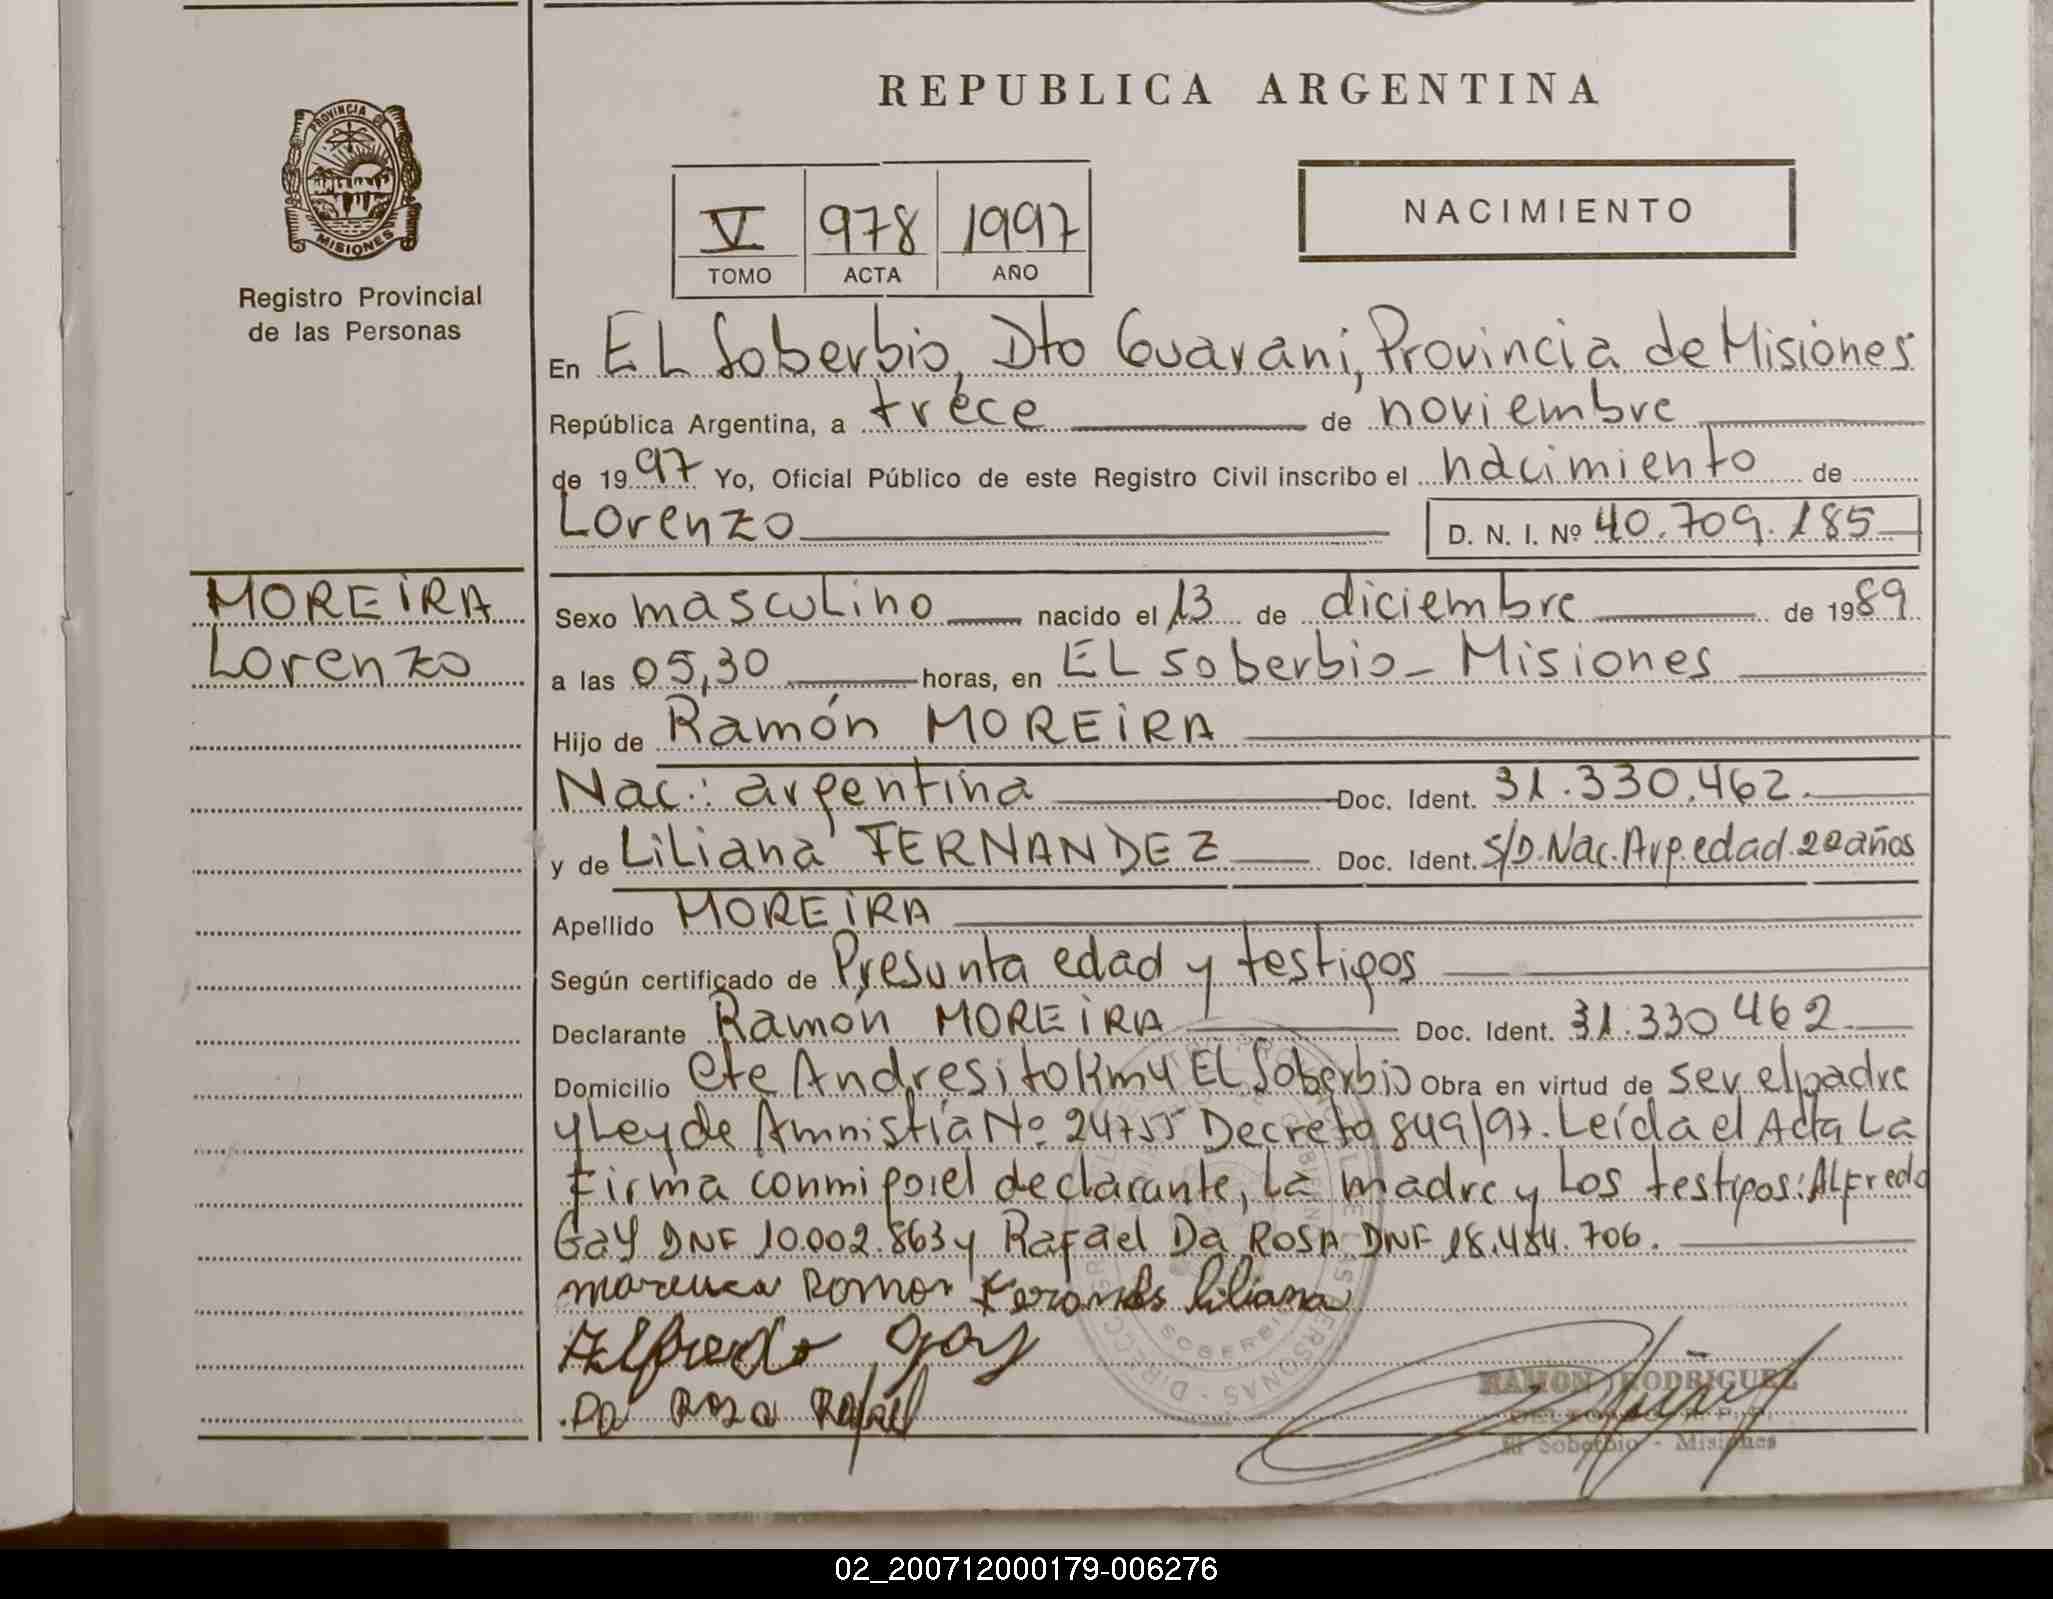 REPUBLICA ARGENTINA
PROVINCIA DE
MISIONES
Registro Provincial
de las Personas
V 978 1997
TOMO ACTA AÑO
NACIMIENTO
En EL Soberbio, Dto Guaraní, Provincia de Misiones
República Argentina, a trece de noviembre
de 1997 Yo, Oficial Público de este Registro Civil inscribo el nacimiento de
Lorenzo D. N. I. Nº 40.709.185
MOREIRA
Lorenzo
Sexo masculino nacido el 13 de diciembre de 1989
a las 05,30 horas, en EL Soberbio - Misiones
Hijo de Ramón MOREIRA
Nac.: argentina Doc. Ident. 31.330.462.
y de Liliana FERNANDEZ Doc. Ident. S/D. Nac. Arg. edad 20 años
Apellido MOREIRA
Según certificado de Presunta edad y testigos
Declarante Ramón MOREIRA Doc. Ident. 31.330 462
Domicilio Cte Andresito Km 4 EL Soberbio Obra en virtud de ser el padre
y Ley de Amnistía Nº 24755 Decreto 849/97. Leída el Acta La
Firma conmigo el declarante, La madre y Los testigos: Alfredo
Gay DNI 10.002.863 y Rafael Da ROSA DNI 18.484.706.
Ramon Liliana
Alfredo Gay
Da Rosa Rafael
RAMON RODRIGUEZ
El Soberbio - Misiones
02_200712000179-006276